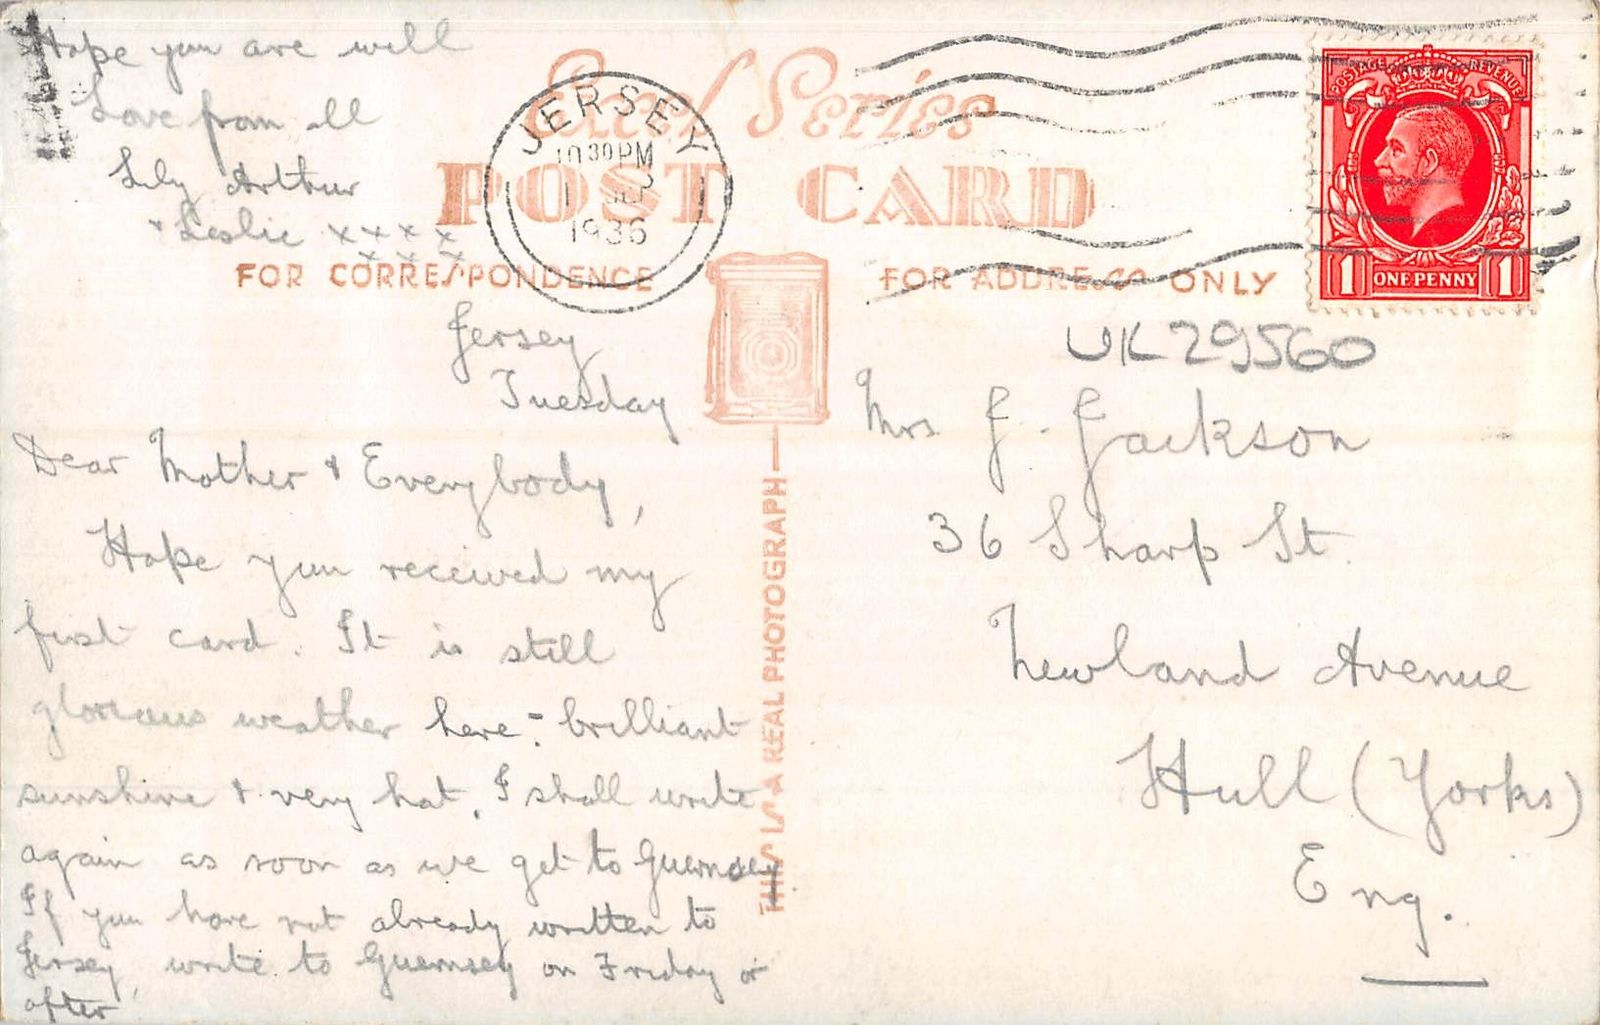 Hope you are well
Love from all
Lily Arthur
+ Leslie xxxx
xxx
Excel Series
POST CARD
FOR CORRESPONDENCE
FOR ADDRESS ONLY
JERSEY
10 30 PM
1
1936
POSTAGE REVENUE
1 ONE PENNY 1
UK 29560
THIS IS A REAL PHOTOGRAPH
Jersey
Tuesday
Dear Mother & Everybody,
Hope you received my
first card. It is still
glorious weather here - brilliant
sunshine & very hot. I shall write
again as soon as we get to Guernsey.
If you have not already written to
Jersey, write to Guernsey on Friday or
after
Mrs. J. Jackson
36 Sharp St.
Newland Avenue
Hull (Yorks)
Eng.